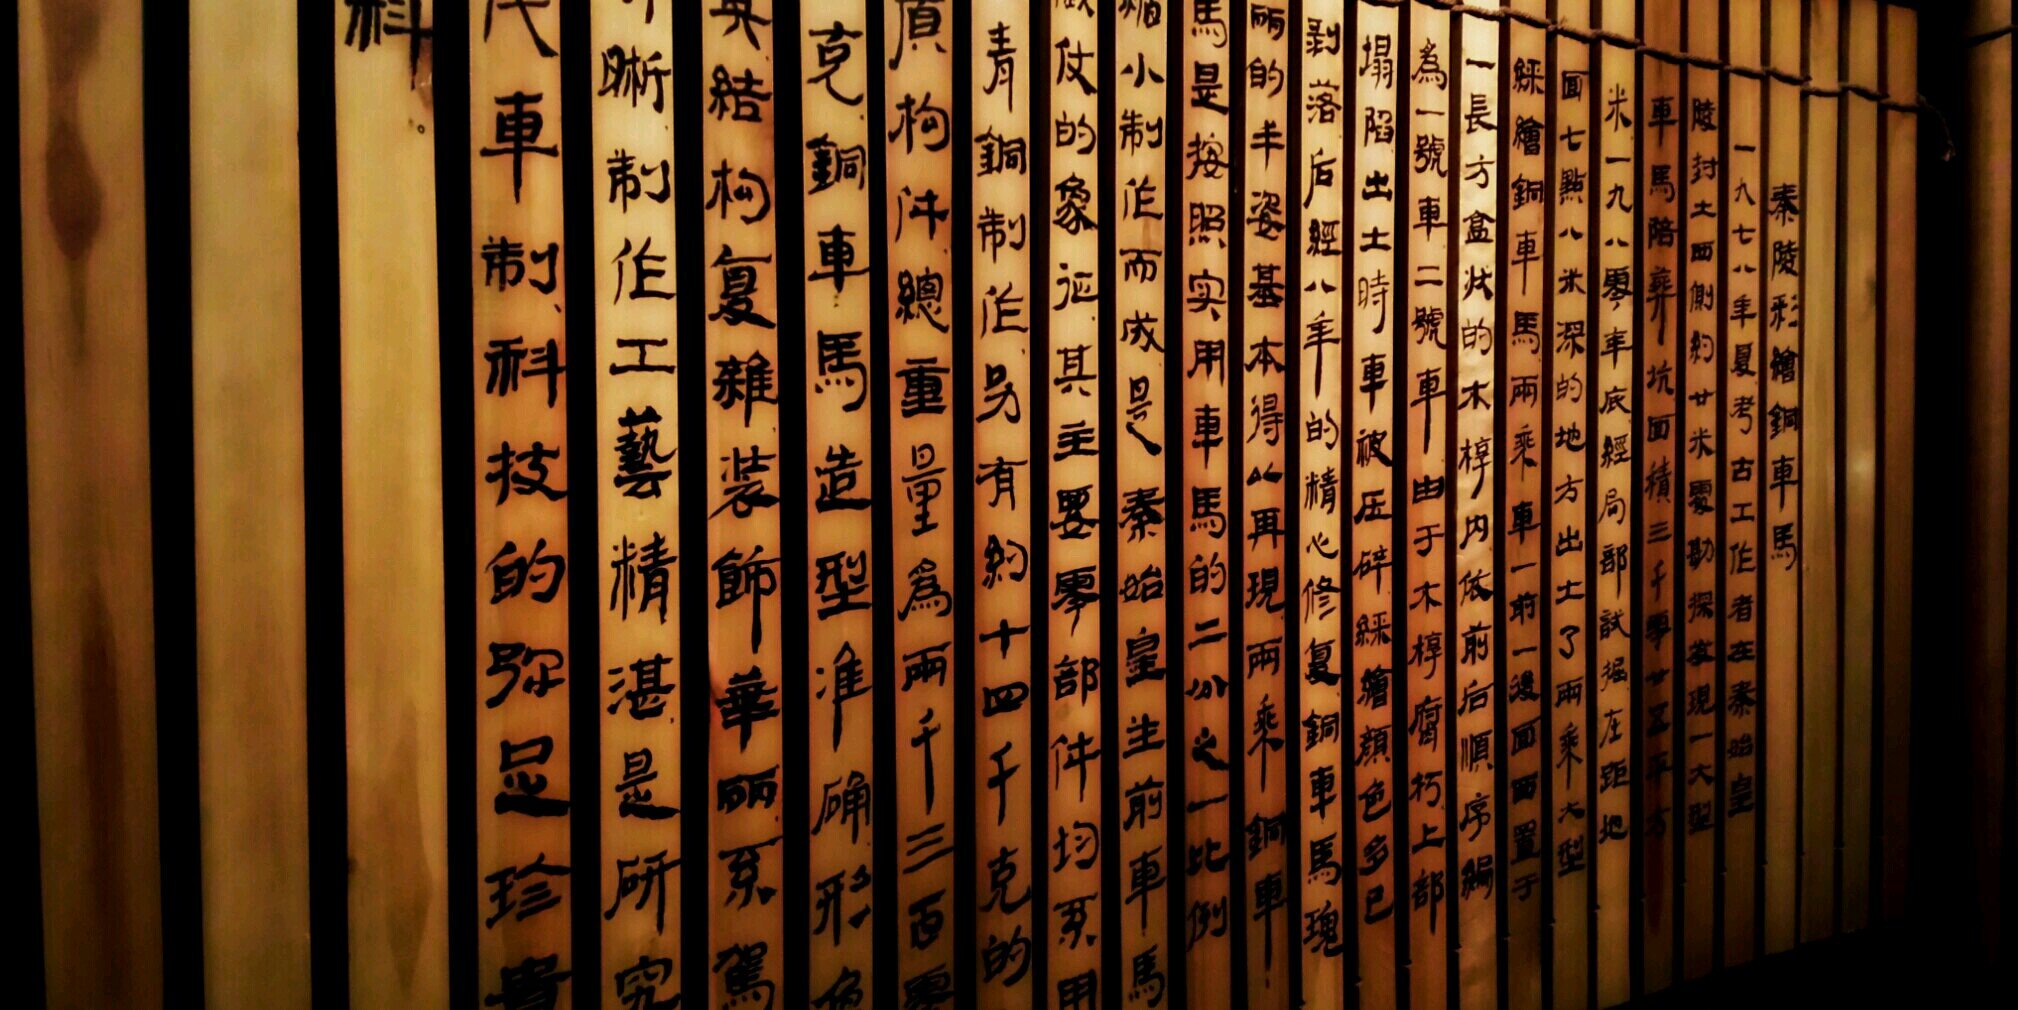 秦陵彩繪銅車馬
一九七八年夏考古工作者在秦始皇
陵封土西側約廿米處勘探發現一大型
車馬陪葬坑面積三千零廿五平方
米一九八零年底經局部試掘在距地
面七點八米深的地方出土了兩乘大型
綵繪銅車馬兩乘車一前一後面西置于
一長方盒狀的木椁内依前后順序編
為一號車二號車由于木椁腐朽上部
塌陷出土時車被压碎綵繪顔色多已
剥落后經八年的精心修复銅車馬瑰
丽的丰姿基本得以再現兩乘銅車
馬是按照实用車馬的二分之一比例
缩小制作而成是秦始皇生前車馬
仪仗的象征其主要零部件均系用
青銅制作另有約十四千克的
構件總重量為兩千三百零
克銅車馬造型准确形色
结构复雜装飾華丽系駕
晰制作工藝精湛是研究
代車制科技的弥足珍貴
料。